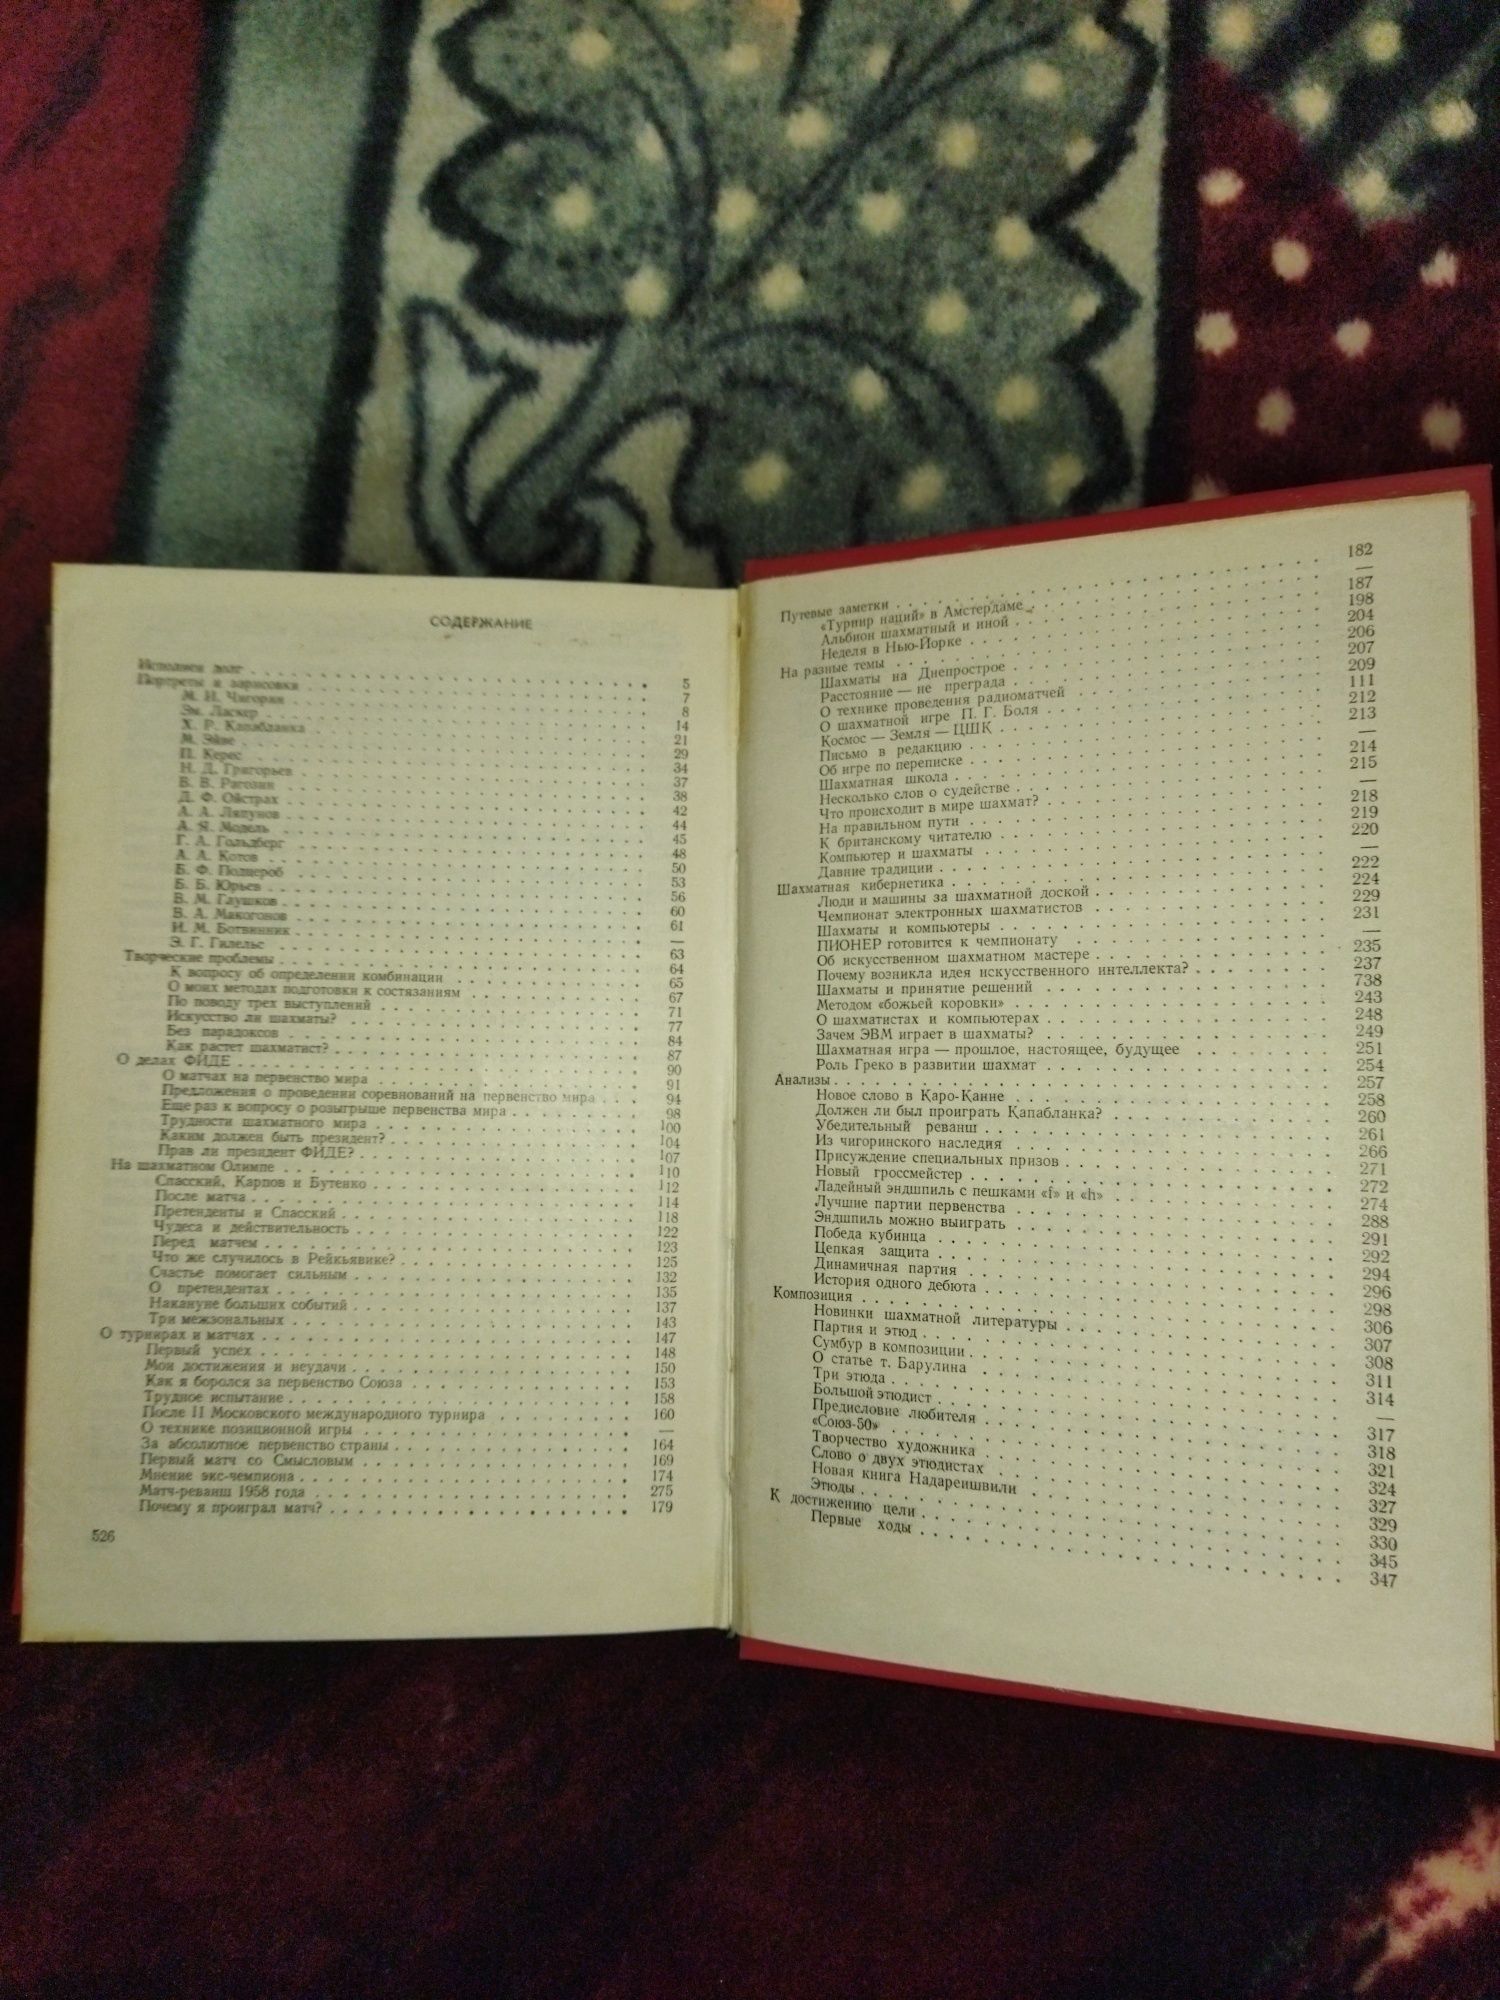 СОДЕРЖАНИЕ
Исполнен долг . . . 5
Портреты и зарисовки . . . 7
М. И. Чигорин . . . 8
Эм. Ласкер . . . 14
Х. Р. Капабланка . . . 21
М. Эйве . . . 29
П. Керес . . . 34
Н. Д. Григорьев . . . 37
В. В. Рагозин . . . 38
Д. Ф. Ойстрах . . . 42
А. А. Ляпунов . . . 44
А. Я. Модель . . . 45
Г. А. Гольдберг . . . 48
А. А. Котов . . . 50
Б. Ф. Подцероб . . . 53
Б. Б. Юрьев . . . 56
В. М. Глушков . . . 60
В. А. Макогонов . . . 61
И. М. Ботвинник . . . —
Э. Г. Гилельс . . . 63
Творческие проблемы . . . 64
К вопросу об определении комбинации . . . 65
О моих методах подготовки к состязаниям . . . 67
По поводу трех выступлений . . . 71
Искусство ли шахматы? . . . 77
Без парадоксов . . . 84
Как растет шахматист? . . . 87
О делах ФИДЕ . . . 90
О матчах на первенство мира . . . 91
Предложения о проведении соревнований на первенство мира . . . 94
Еще раз к вопросу о розыгрыше первенства мира . . . 98
Трудности шахматного мира . . . 100
Каким должен быть президент? . . . 104
Прав ли президент ФИДЕ? . . . 107
На шахматном Олимпе . . . 110
Спасский, Карпов и Бутенко . . . 112
После матча . . . 114
Претенденты и Спасский . . . 118
Чудеса и действительность . . . 122
Перед матчем . . . 123
Что же случилось в Рейкьявике? . . . 125
Счастье помогает сильным . . . 132
О претендентах . . . 135
Накануне больших событий . . . 137
Три межзональных . . . 143
О турнирах и матчах . . . 147
Первый успех . . . 148
Мои достижения и неудачи . . . 150
Как я боролся за первенство Союза . . . 153
Трудное испытание . . . 158
После II Московского международного турнира . . . 160
О технике позиционной игры . . . —
За абсолютное первенство страны . . . 164
Первый матч со Смысловым . . . 169
Мнение экс-чемпиона . . . 174
Матч-реванш 1958 года . . . 275
Почему я проиграл матч? . . . 179
526
Путевые заметки . . . 182
«Турнир наций» в Амстердаме . . . —
Альбион шахматный и иной . . . 187
Неделя в Нью-Йорке . . . 198
На разные темы . . . 204
Шахматы на Днепрострое . . . 206
Расстояние — не преграда . . . 207
О технике проведения радиоматчей . . . 209
О шахматной игре П. Г. Боля . . . 111
Космос — Земля — ЦШК . . . 212
Письмо в редакцию . . . 213
Об игре по переписке . . . —
Шахматная школа . . . 214
Несколько слов о судействе . . . 215
Что происходит в мире шахмат? . . . —
На правильном пути . . . 218
К британскому читателю . . . 219
Компьютер и шахматы . . . 220
Давние традиции . . . —
Шахматная кибернетика . . . 222
Люди и машины за шахматной доской . . . 224
Чемпионат электронных шахматистов . . . 229
Шахматы и компьютеры . . . 231
ПИОНЕР готовится к чемпионату . . .
Об искусственном шахматном мастере . . . 235
Почему возникла идея искусственного интеллекта? . . . 237
Шахматы и принятие решений . . . 738
Методом «божьей коровки» . . . 243
О шахматистах и компьютерах . . . 248
Зачем ЭВМ играет в шахматы? . . . 249
Шахматная игра — прошлое, настоящее, будущее . . . 251
Роль Греко в развитии шахмат . . . 254
Анализы . . . 257
Новое слово в Каро-Канне . . . 258
Должен ли был проиграть Капабланка? . . . 260
Убедительный реванш . . . 261
Из чигоринского наследия . . . 266
Присуждение специальных призов . . . 271
Новый гроссмейстер . . . 272
Ладейный эндшпиль с пешками «f» и «h» . . . 274
Лучшие партии первенства . . . 288
Эндшпиль можно выиграть . . . 291
Победа кубинца . . . 292
Цепкая защита . . . 294
Динамичная партия . . . 296
История одного дебюта . . . 298
Композиция . . . 306
Новинки шахматной литературы . . . 307
Партия и этюд . . . 308
Сумбур в композиции . . . 311
О статье т. Барулина . . . 314
Три этюда . . . —
Большой этюдист . . . 317
Предисловие любителя . . . 318
«Союз-50» . . . 321
Творчество художника . . . 324
Слово о двух этюдистах . . . 327
Новая книга Надареишвили . . . 329
Этюды . . . 330
К достижению цели . . . 345
Первые ходы . . . 347